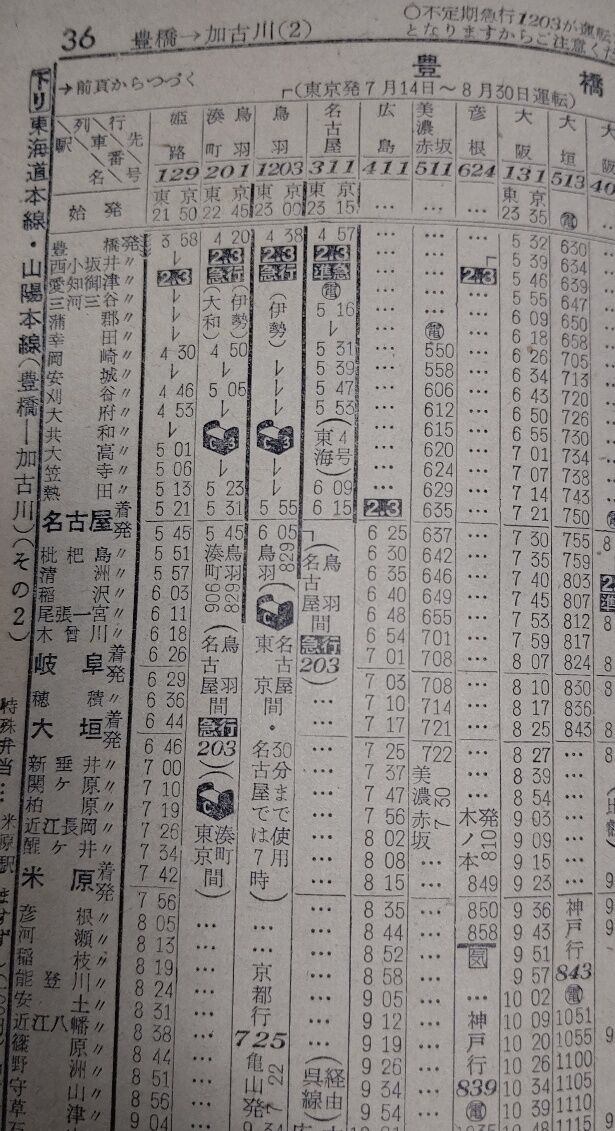 36 豊橋→加古川(2)
○不定期急行1203が運転
となりますからご注意く
→前頁からつづく
豊 橋
(東京発7月14日~8月30日運転)
下り 東海道本線・山陽本線(豊橋―加古川)(その2)
行先 姫路 湊町 鳥羽 鳥羽 名古屋 広島 美濃赤坂 彦根 大阪 大垣 大阪
列車番号 129 201 1203 311 411 511 624 131 513 40
駅名
始発 東京 21 50 東京 22 45 東京 23 00 東京 23 15 … … … 東京 23 35 電
豊橋発 3 58 4 20 4 38 4 57 … … … 5 32 630
西小坂井〃 レ 2・3 2・3 2・3 … … … 5 39 634
愛知御津〃 2・3 急行 急行 準急 … … 2・3 5 46 639
三河三谷〃 レ 電 … … … 5 55 647
蒲郡〃 レ (大和) (伊勢) (伊勢) 5 16 … … 6 09 650
幸田〃 レ レ … 電 … 6 18 658
岡崎〃 4 30 4 50 レ 5 31 … 550 … 6 26 705
安城〃 レ レ レ 5 39 … 558 … 6 34 713
刈谷〃 4 46 5 05 レ 5 47 … 606 … 6 43 720
大府〃 4 53 レ レ 5 53 … 612 … 6 50 726
共和〃 レ … 615 … 6 55 730
大高〃 5 01 C3 C3 (東海4号) … 620 … 7 01 734
笠寺〃 5 06 レ レ … 624 … 7 07 738
熱田〃 5 13 5 23 レ 6 09 … 629 … 7 14 743
名古屋着 5 21 5 31 5 55 6 15 2・3 635 … 7 21 750
発 5 45 5 45 6 05 6 25 637 … 7 30 755
枇杷島〃 5 51 湊町906 鳥羽829 鳥羽829 6 30 642 … 7 35 759
清洲〃 5 57 6 35 646 … 7 40 803
稲沢〃 6 03 6 40 649 … 7 45 807
尾張一宮〃 6 11 6 48 655 … 7 53 812
木曽川〃 6 18 6 54 701 … 7 59 817
岐阜着 6 26 (鳥羽 名古屋間 急行 203) (鳥羽 名古屋間 急行 203) 7 01 708 … 8 07 824
発 6 29 … 7 03 708 … 8 10 830
穂積〃 6 36 … 7 10 714 … 8 17 836
大垣着 6 44 … 7 17 721 … 8 25 843
発 6 46 … 7 25 722 … 8 27 …
新垂井〃
関ケ原〃 7 00 … 7 37 美濃赤坂 7 30 … 8 39 …
柏原〃 7 10 … 7 47 … 8 54 …
近江長岡〃 7 19 … 7 56 木ノ本発810 9 03 …
醒ケ井〃 7 26 … 8 02 … 9 09 …
7 34 … 8 08 … 9 15 …
米原着 7 42 (湊町 東京間) … 8 15 … 849 9 23 …
発 7 56 … 8 35 … 850 9 36 神戸行843
彦根〃 8 05 … … 8 44 … 858 9 43
河瀬〃 8 13 … … 8 52 … 気 9 51
稲枝〃 8 19 … … 8 58 … … 9 57
能登川〃 8 24 … 京都行725 … 9 05 … … 10 02 電
安土〃 8 31 … … 9 12 … 神戸行839 10 09 1051
近江八幡〃 8 38 … … 9 19 … 10 20 1055
篠原〃 8 44 … … 9 26 … 10 26 1100
野洲〃 8 51 … 亀山発7 22 … 9 34 … 10 34 1105
守山〃 8 56 … 9 54 … 電 10 39 1110
草津〃 9 04 … 9 34 (呉線経由) … 1035 10 48 1115
(東京 名古屋間・名古屋では7時30分まで使用)
特殊弁当… 米原駅 ますず